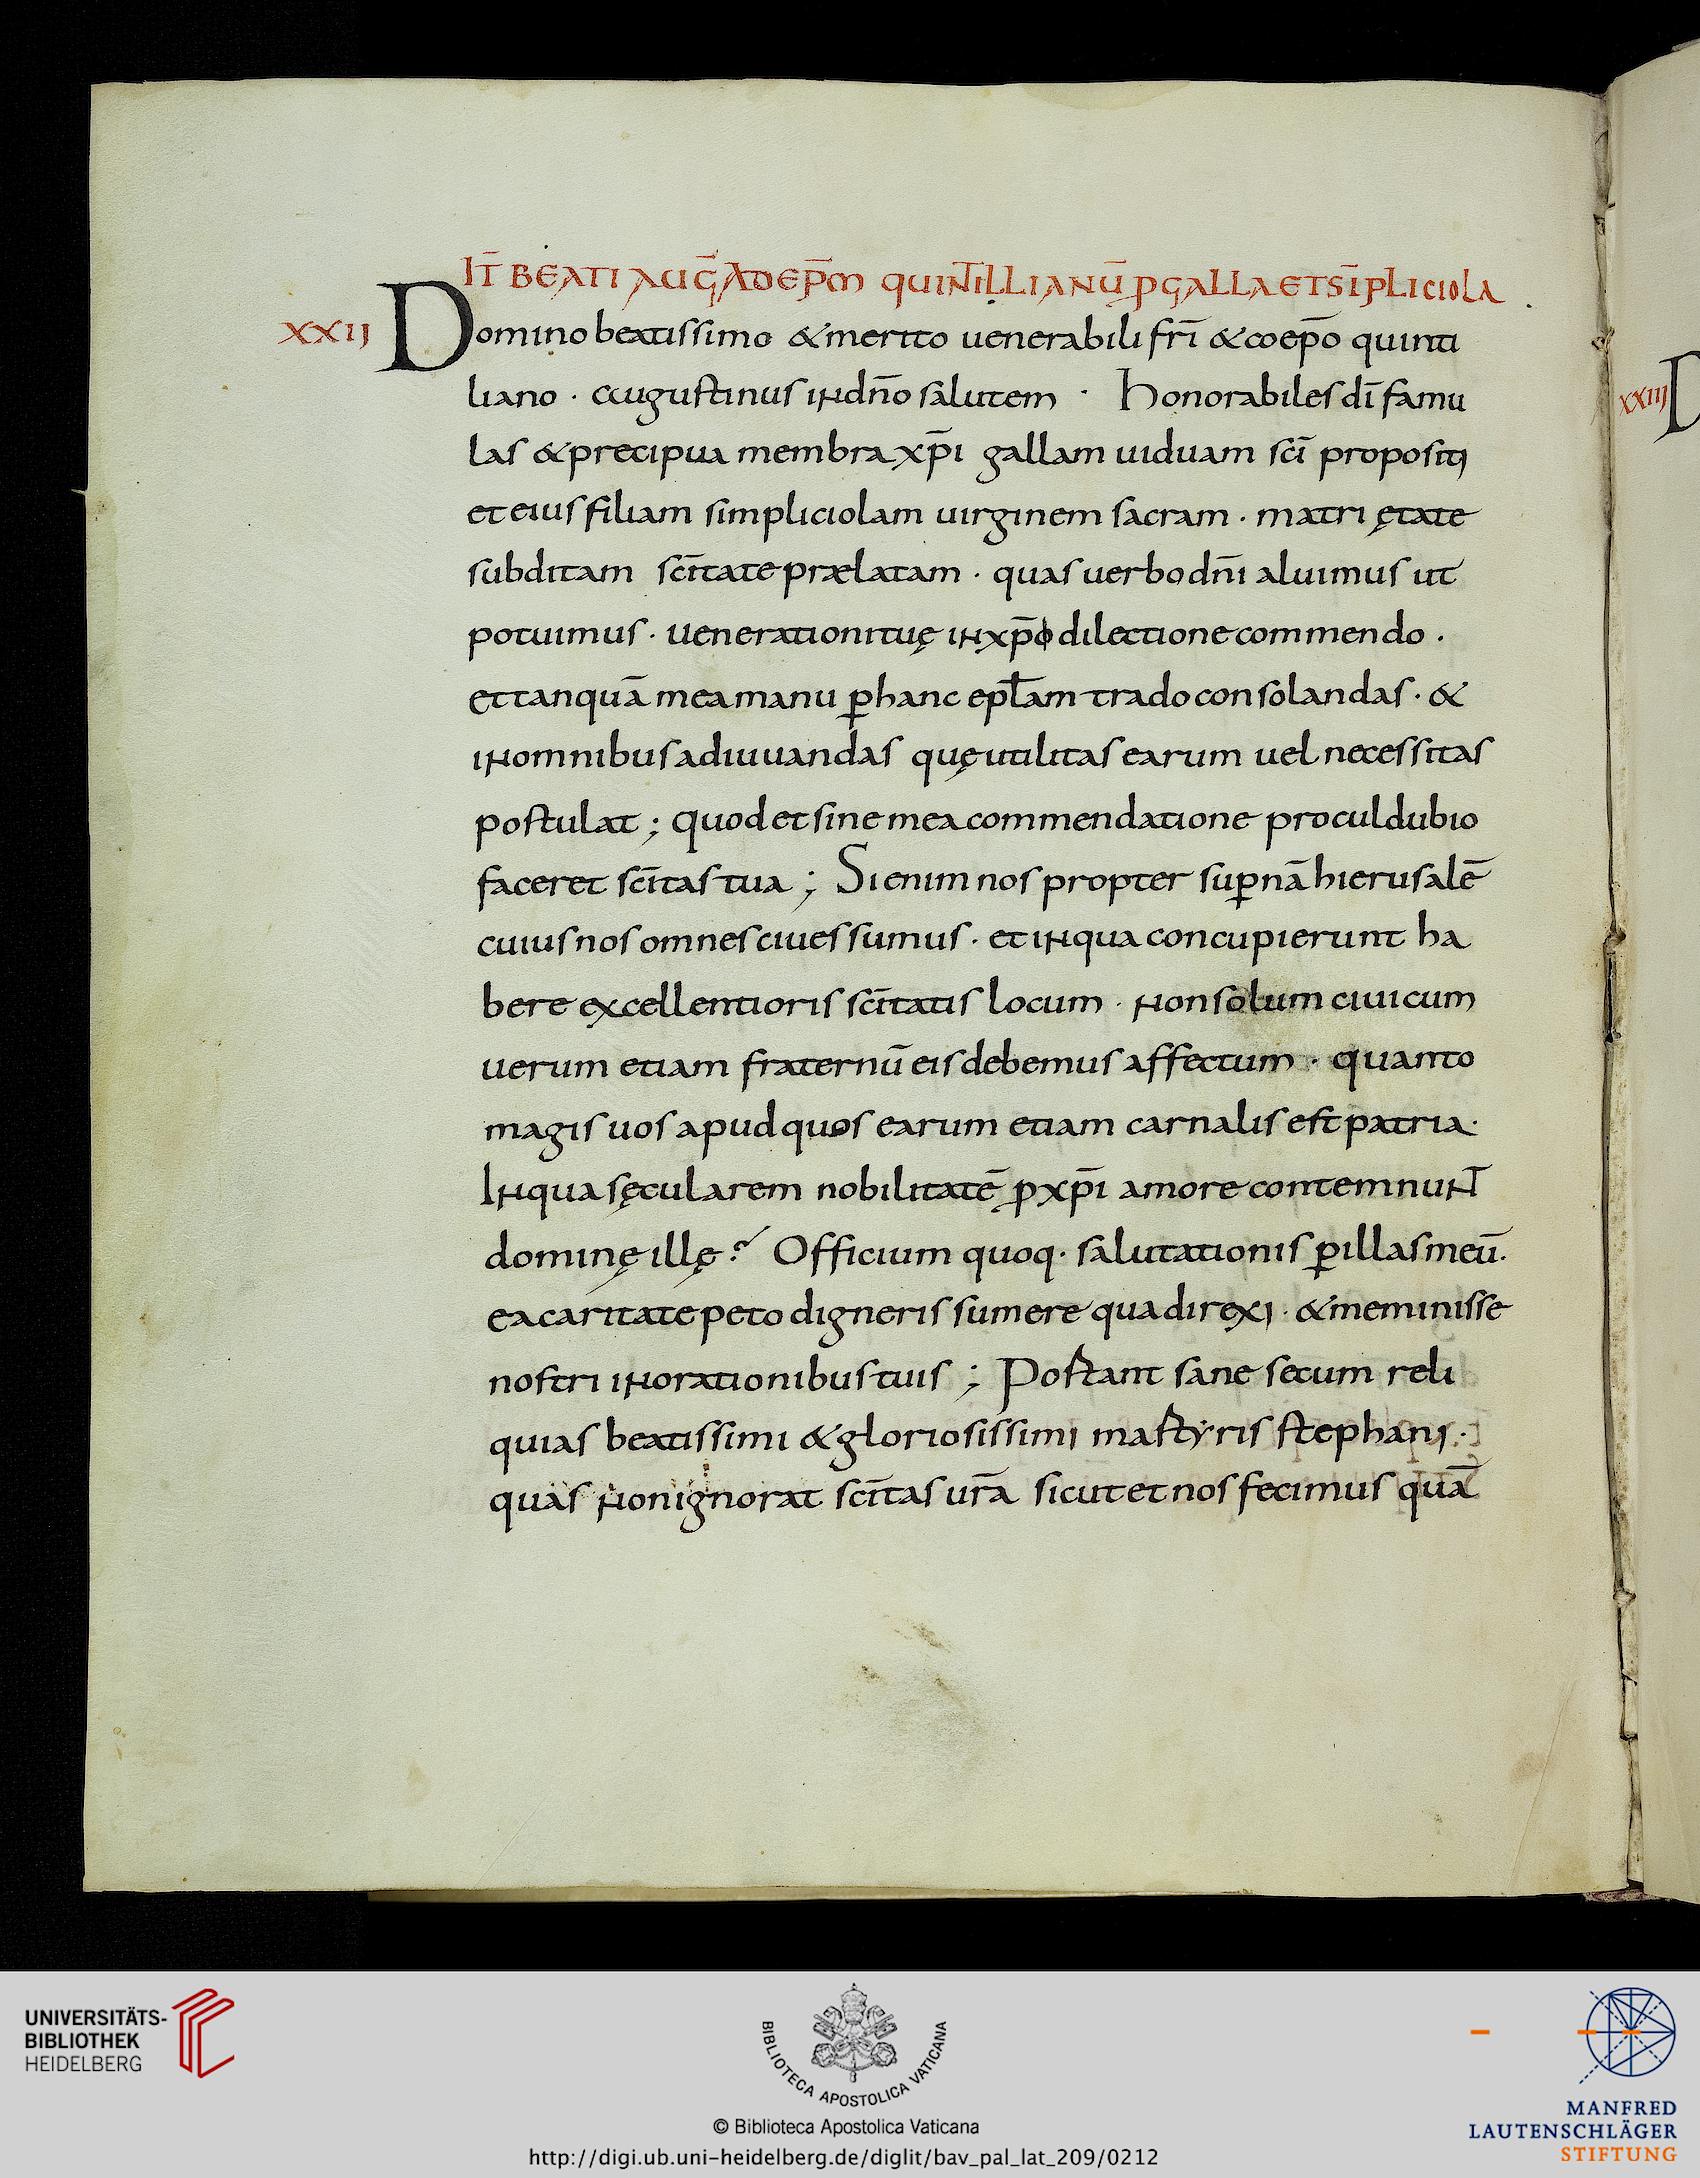 IT̄ BEATI AUḠ AD EP̄M QUINTILLIANŪ P GALLA ET SĪPLICIOLA
XXIJ Domino beatissimo & merito uenerabili frī & coep̄o quinti
liano · augustinus in dn̄o salutem · Honorabiles dī famu
las & precipua membra xp̄i gallam uiduam sc̄i propositi
et eius filiam simpliciolam uirginem sacram · matri ętate
subditam sc̄itate prælatam · quas uerbo dn̄i aluimus ut
potuimus · uenerationi tuę in xp̄o dilectione commendo ·
et tanquā mea manu ꝑ hanc epl̄am trado consolandas · &
in omnibus adiuuandas quę utilitas earum uel necessitas
postulat ; quod et sine mea commendatione procul dubio
faceret sc̄itas tua ; Si enim nos propter suꝑnā hierusalē
cuius nos omnes ciues sumus · et in qua concupierunt ha
bere excellentioris sc̄itatis locum · non solum ciuicum
uerum etiam fraternū eis debemus affectum · quanto
magis uos apud quos earum etiam carnalis est patria ·
In qua sęcularem nobilitatē ꝓ xp̄i amore contemnunt
dominę illę ? Officium quoq· salutationis ꝑ illas meū ·
ea caritate peto digneris sumere qua direxi · & meminisse
nostri in orationibus tuis ; Portant sane secum reli
quias beatissimi & gloriosissimi martyris stephani ·
quas non ignorat sc̄itas ur̄a sicut et nos fecimus quā
XXIIJ D
UNIVERSITÄTS-
BIBLIOTHEK
HEIDELBERG
BIBLIOTECA APOSTOLICA VATICANA
© Biblioteca Apostolica Vaticana
http://digi.ub.uni-heidelberg.de/diglit/bav_pal_lat_209/0212
MANFRED
LAUTENSCHLÄGER
STIFTUNG